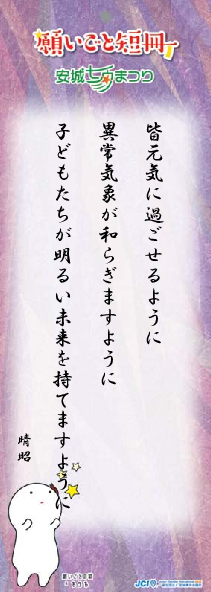 願いごと短冊
安城七夕まつり
皆元気に過ごせるように
異常気象が和らぎますように
子どもたちが明るい未来を持てますように
晴昭
JCI